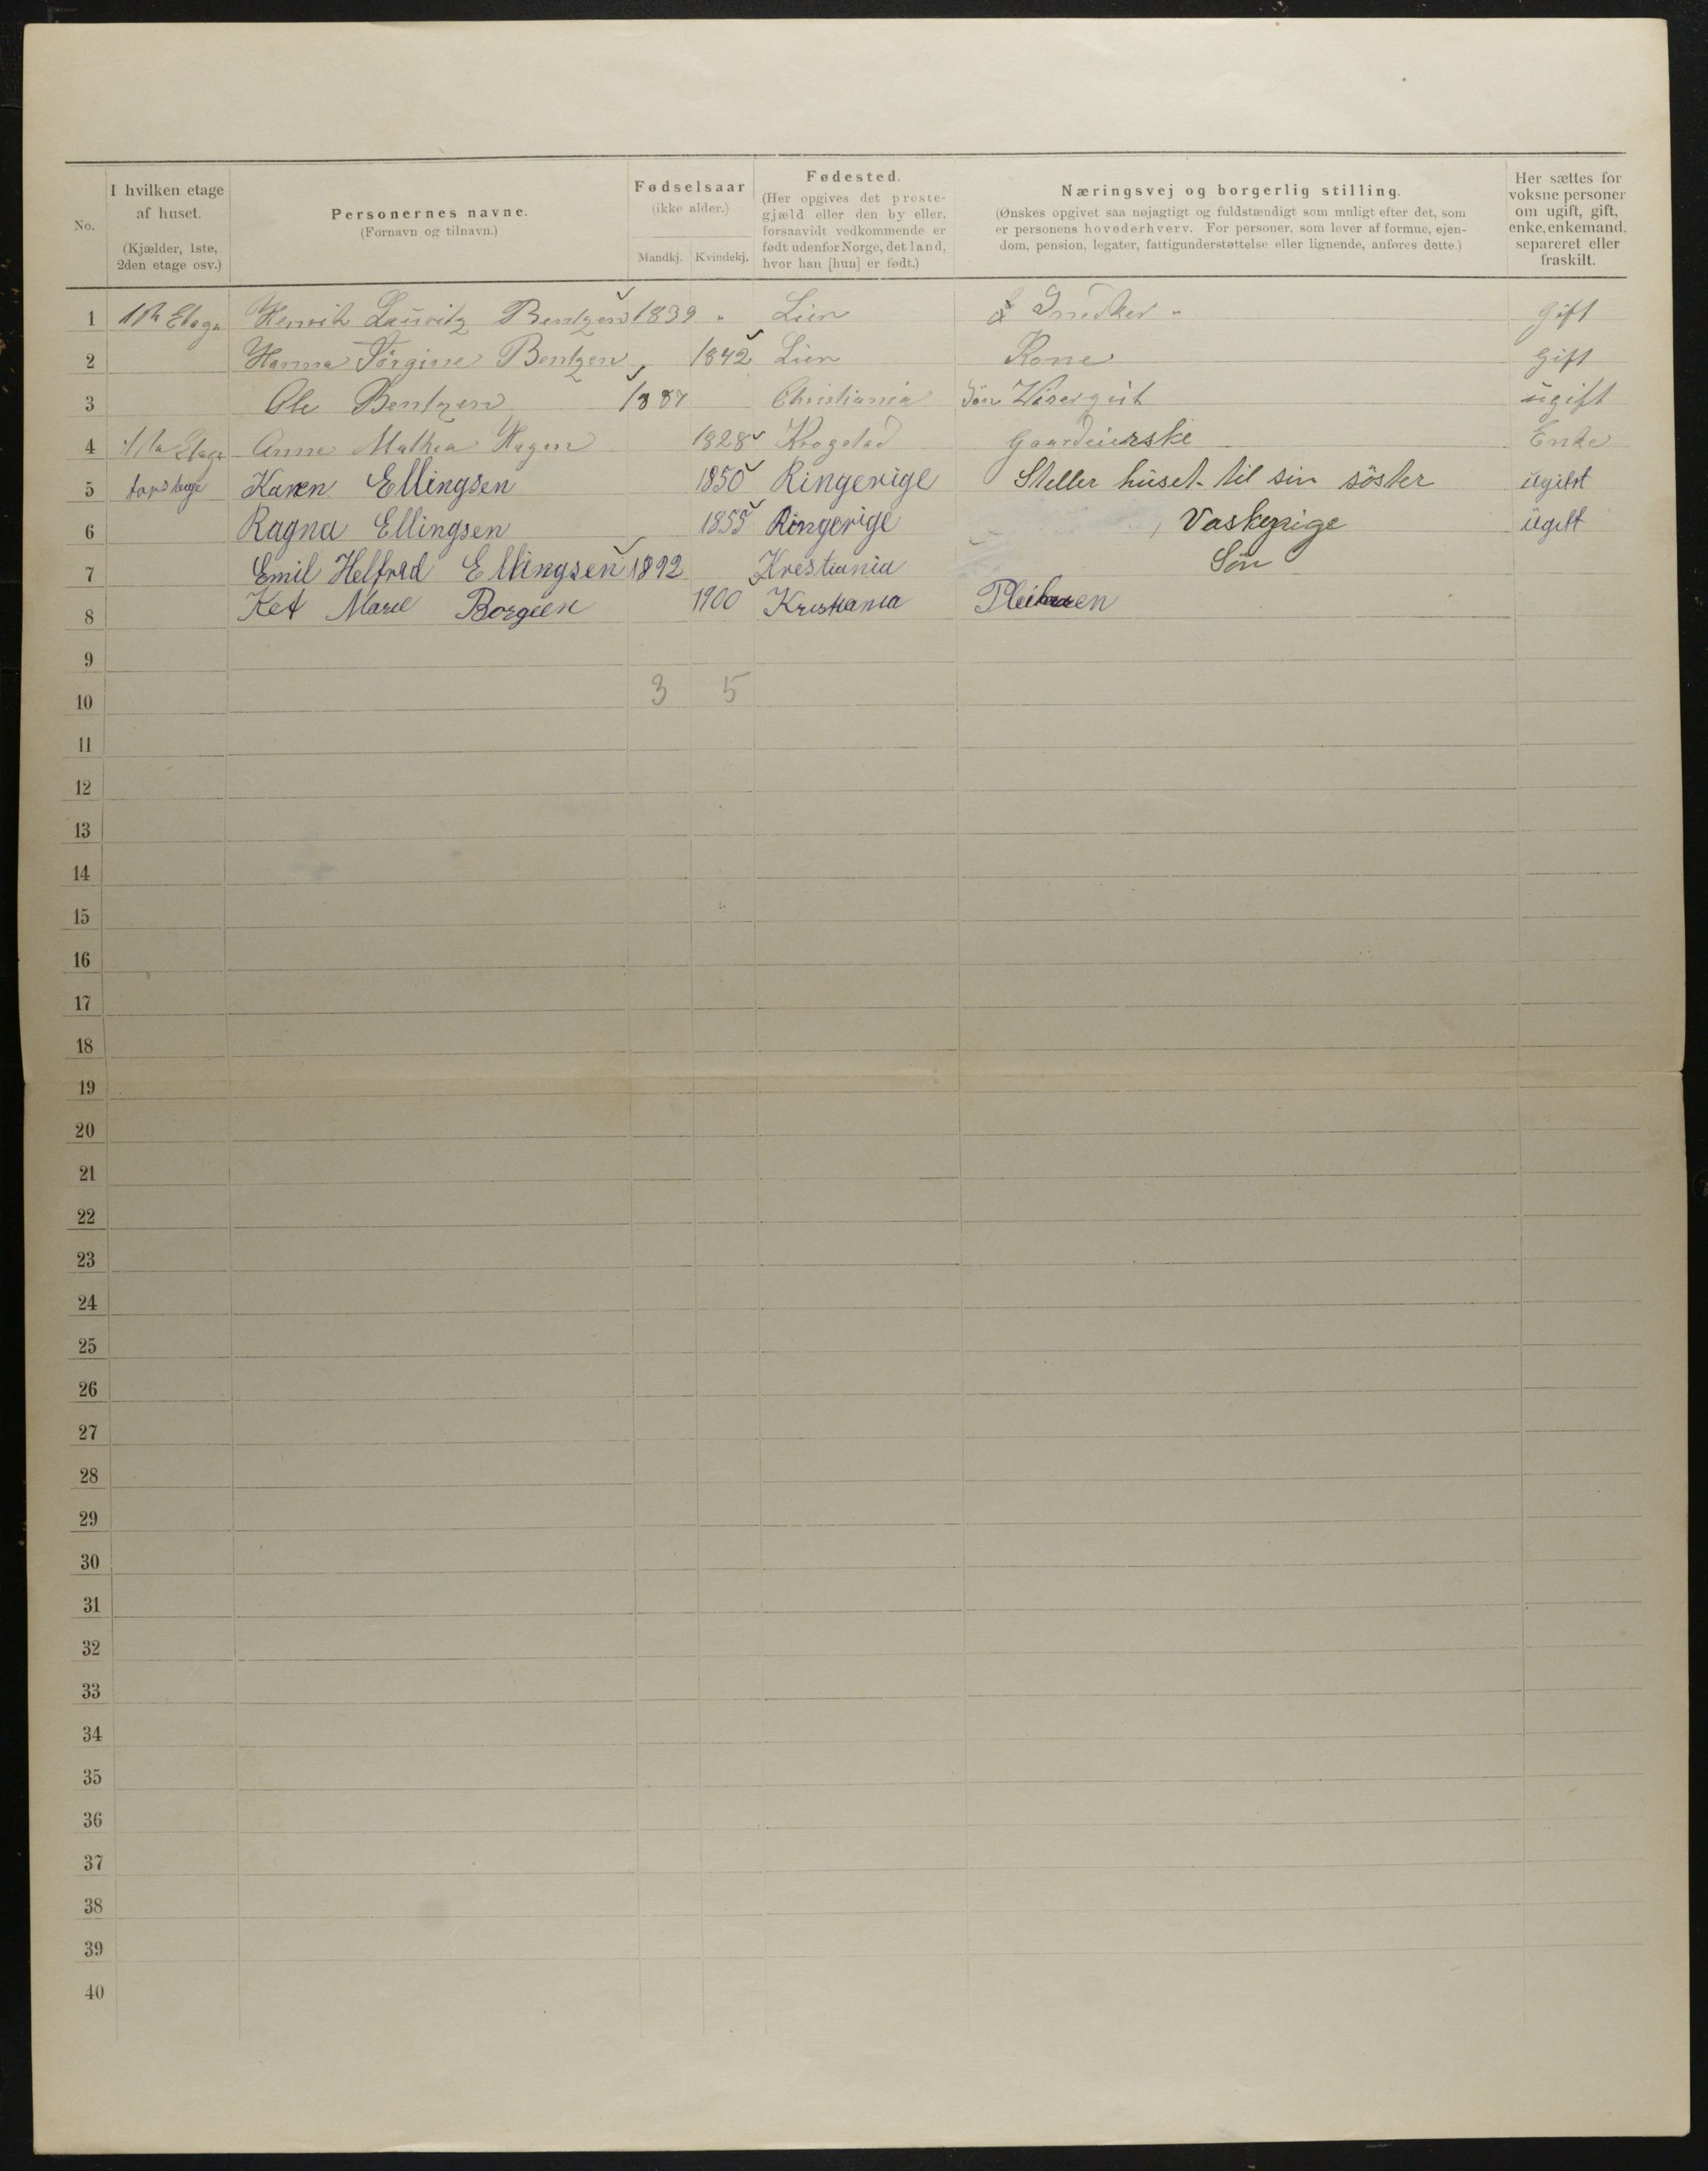 No. | I hvilken etage af huset. (Kjælder, 1ste, 2den etage osv.) | Personernes navne. (Fornavn og tilnavn.) | Fødselsaar (ikke alder.) Mandkj. Kvindekj. | Fødested. (Her opgives det prestegjæld eller den by eller, forsaavidt vedkommende er født udenfor Norge, det land, hvor han [hun] er født.) | Næringsvej og borgerlig stilling. (Ønskes opgivet saa nøjagtigt og fuldstændigt som muligt efter det, som er personens hovederhverv. For personer, som lever af formue, ejendom, pension, legater, fattigunderstøttelse eller lignende, anføres dette.) | Her sættes for voksne personer om ugift, gift, enke, enkemand, separeret eller fraskilt.
1 Etage Henrik Lauritz Bentzen 1839 " Lier Snedker " gift
2 Hanna Jørgine Bentzen 1842 Lier Kone gift
3 Ole Bentzen 1887 Christiania Søn Visergut ugift
4 Etage Anne Mathea Hagen 1828 Krogstad Enke
5 Karen Ellingsen 1850 Ringerige Steller huset til sin søster ugift
6 Ragna Ellingsen 1855 Ringerige Vaskepige ugift
7 Emil Helfred Ellingsen 1892 Krestiania Søn
8 Marie Borgeen 1900 Kristiania
9
10 3 5
11
12
13
14
15
16
17
18
19
20
21
22
23
24
25
26
27
28
29
30
31
32
33
34
35
36
37
38
39
40